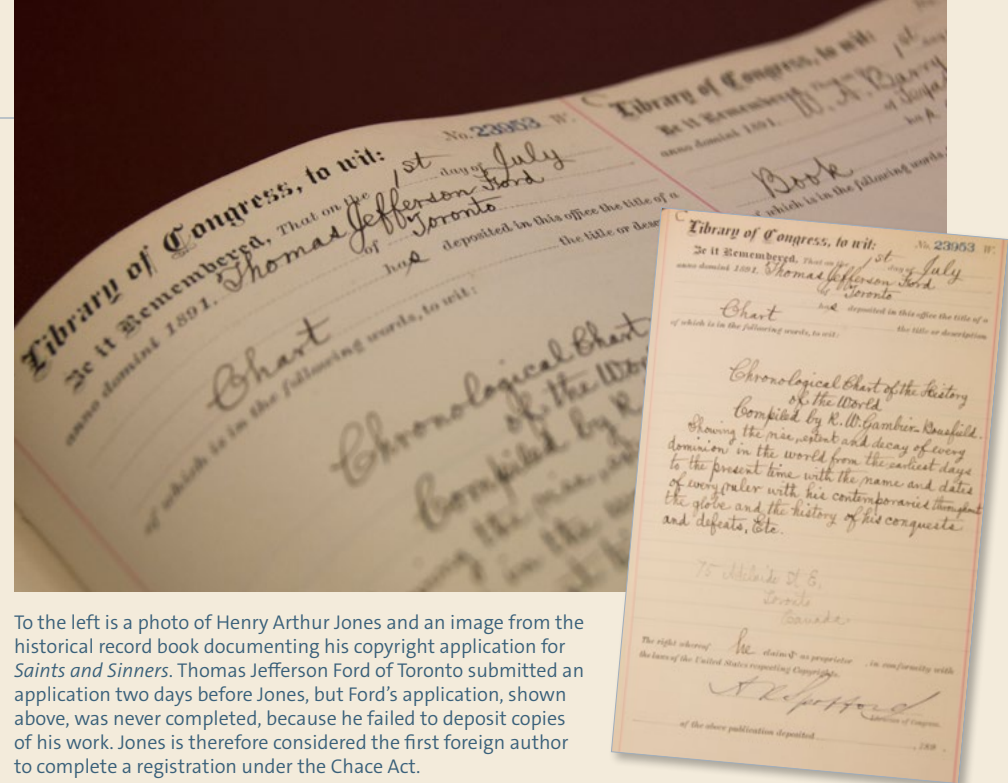 Library of Congress, to wit:
No. 23953 W.
Be it Remembered, That on the 1st day of July
anno domini 1891. Thomas Jefferson Ford
of Toronto
has deposited in this office the title of a
Chart the title or desc
of which is in the following words, to wit:
Chronological Chart
of the Wor
Compiled by R
Library of Congress, to wit:
Be it Remembered, That on the 1st day
anno domini 1891. W. A. Barry
of
has
Book
of which is in the following words,
Library of Congress, to wit:
No. 23953 W.
Be it Remembered, That on the 1st day of July
anno domini 1891. Thomas Jefferson Ford
of Toronto
has deposited in this office the title of a
Chart the title or description
of which is in the following words, to wit:
Chronological Chart of the History
of the World
Compiled by R. W. Gambier-Bousfield.
Showing the rise, extent and decay of every
dominion in the world from the earliest days
to the present time with the name and dates
of every ruler with his contemporaries throughout
the globe and the history of his conquests
and defeats, Etc.
75 Adelaide St. E.
Toronto
Canada
The right whereof he claims as proprietor, in conformity with
the laws of the United States respecting Copyrights.
A R Spofford
Librarian of Congress.
of the above publication deposited , 189 .
To the left is a photo of Henry Arthur Jones and an image from the
historical record book documenting his copyright application for
Saints and Sinners. Thomas Jefferson Ford of Toronto submitted an
application two days before Jones, but Ford’s application, shown
above, was never completed, because he failed to deposit copies
of his work. Jones is therefore considered the first foreign author
to complete a registration under the Chace Act.